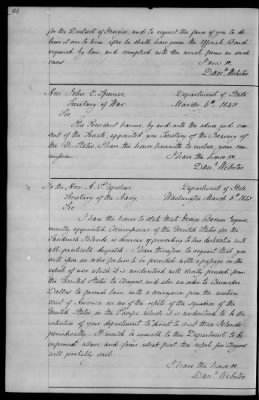 for the District of Georgia, and to request the favor of you to de-
liver it to him after he shall have given the Official Bond
required by law, and complied with the usual forms in such
cases.
I am &c
Danl. Webster
Hon. John C. Spencer Department of State
Secretary of War March 6th 1843
Sir
The President having, by and with the advice and con-
sent of the Senate, appointed you Secretary of the Treasury of
the U. States, I have the honor herewith to enclose, your com-
mission.
I have the honor &c
Danl. Webster
To the Hon. A. P. Upshur Department of State
Secretary of the Navy. Washington March 6th 1843
Sir
I have the honor to state that George Brown Esquire
recently appointed Commissioner of the United States for the
Sandwich Islands, is desirous of proceeding to his destination with
all practicable dispatch. I have therefore to request that you
will issue an order to provide him with a passage in the
vessel of war which it is understood will shortly proceed from
the United States to and also an order to Commodore
Dallas to furnish him with a conveyance from the western
coast of America in one of the vessels of the squadron of the
United States in the Pacific which it is understood to be the
intention of your department to direct to visit those Islands
periodically. It would be useful to this Department to be
informed when and from what port the vessel for
will probably sail.
I have the honor &c
Danl. Webster